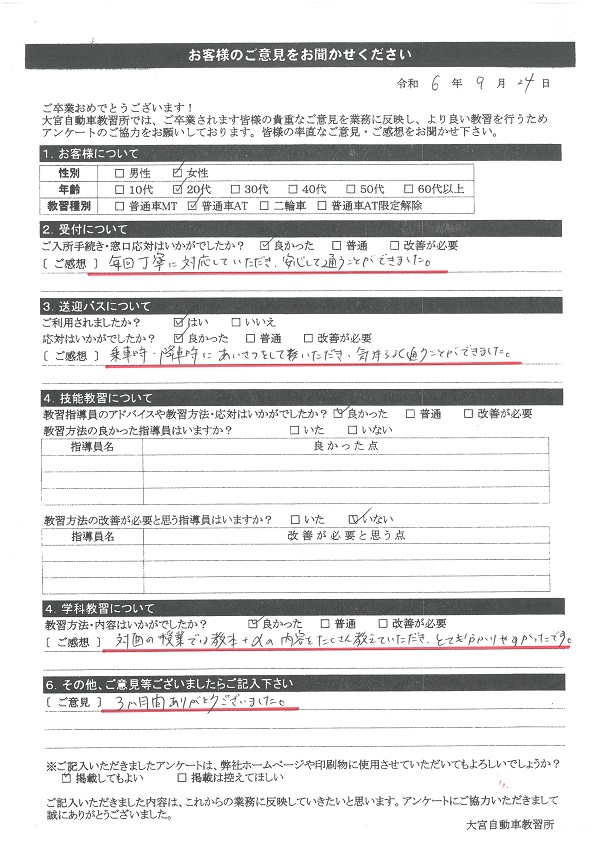 お客様のご意見をお聞かせください
令和 6 年 9 月 24 日
ご卒業おめでとうございます！
大宮自動車教習所では、ご卒業されます皆様の貴重なご意見を業務に反映し、より良い教習を行うため
アンケートのご協力をお願いしております。皆様の率直なご意見・ご感想をお聞かせ下さい。
1. お客様について
性別 □ 男性 ☑ 女性
年齢 □ 10代 ☑ 20代 □ 30代 □ 40代 □ 50代 □ 60代以上
教習種別 □ 普通車MT ☑ 普通車AT □ 二輪車 □ 普通車AT限定解除
2. 受付について
ご入所手続き・窓口応対はいかがでしたか？ ☑ 良かった □ 普通 □ 改善が必要
[ ご感想 ] 毎回丁寧に対応していただき、安心して通うことができました。
3. 送迎バスについて
ご利用されましたか？ ☑ はい □ いいえ
応対はいかがでしたか？ ☑ 良かった □ 普通 □ 改善が必要
[ ご感想 ] 乗車時・降車時にあいさつをして頂いただき、気持ちよく通うことができました。
4. 技能教習について
教習指導員のアドバイスや教習方法・応対はいかがでしたか？ ☑ 良かった □ 普通 □ 改善が必要
教習方法の良かった指導員はいますか？ □ いた □ いない
指導員名 良かった点
教習方法の改善が必要と思う指導員はいますか？ □ いた ☑ いない
指導員名 改善が必要と思う点
4. 学科教習について
教習方法・内容はいかがでしたか？ ☑ 良かった □ 普通 □ 改善が必要
[ ご感想 ] 対面の授業では教本+αの内容をたくさん教えていただき、とても分かりやすかったです。
6. その他、ご意見等ございましたらご記入下さい
[ ご意見 ] 3ヶ月間ありがとうございました。
※ご記入いただきましたアンケートは、弊社ホームページや印刷物に使用させていただいてもよろしいでしょうか？
☑ 掲載してもよい □ 掲載は控えてほしい
ご記入いただきました内容は、これからの業務に反映していきたいと思います。アンケートにご協力いただきまして
誠にありがとうございました。
大宮自動車教習所